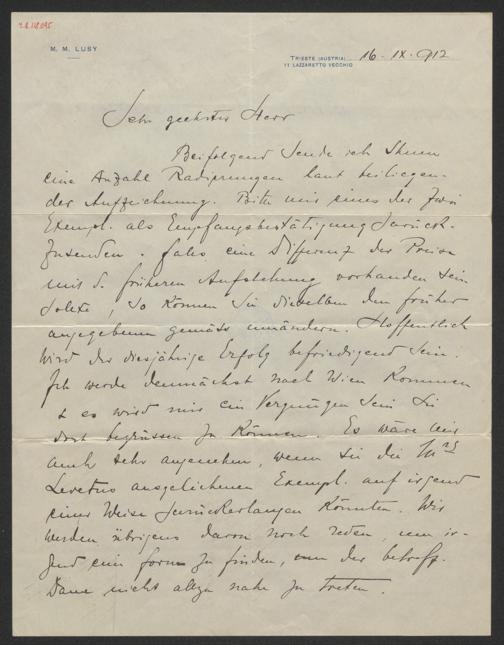 M. M. LUSY
TRIESTE (AUSTRIA) 16 - IX - 912
11 LAZZARETTO VECCHIO
Sehr geehrter Herr
Beifolgend sende ich Ihnen
eine Anzahl Radierungen laut beiliegen-
der Aufzeichnung. Bitte mir eines der zwei
Exempl. als Empfangsbestätigung zurück-
zusenden. Falls eine Differenz der Preise
mit d. früheren Aufstellung vorhanden sein
sollte, so können Sie dieselben den früher
angegebenen gemäss umändern. Hoffentlich
wird der diesjährige Erfolg befriedigend sein.
Ich werde demnächst nach Wien kommen
& es wird mir ein Vergnügen sein Sie
dort begrüssen zu können. Es wäre mir
auch sehr angenehm, wenn Sie die Mrs
Levetus ausgeliehenen Exempl. auf irgend
einer Weise zurückerlangen könnten. Wir
werden übrigens davon noch reden, um ir-
gend eine Form zu finden, um der betreff.
Dame nicht allzu nahe zu treten.